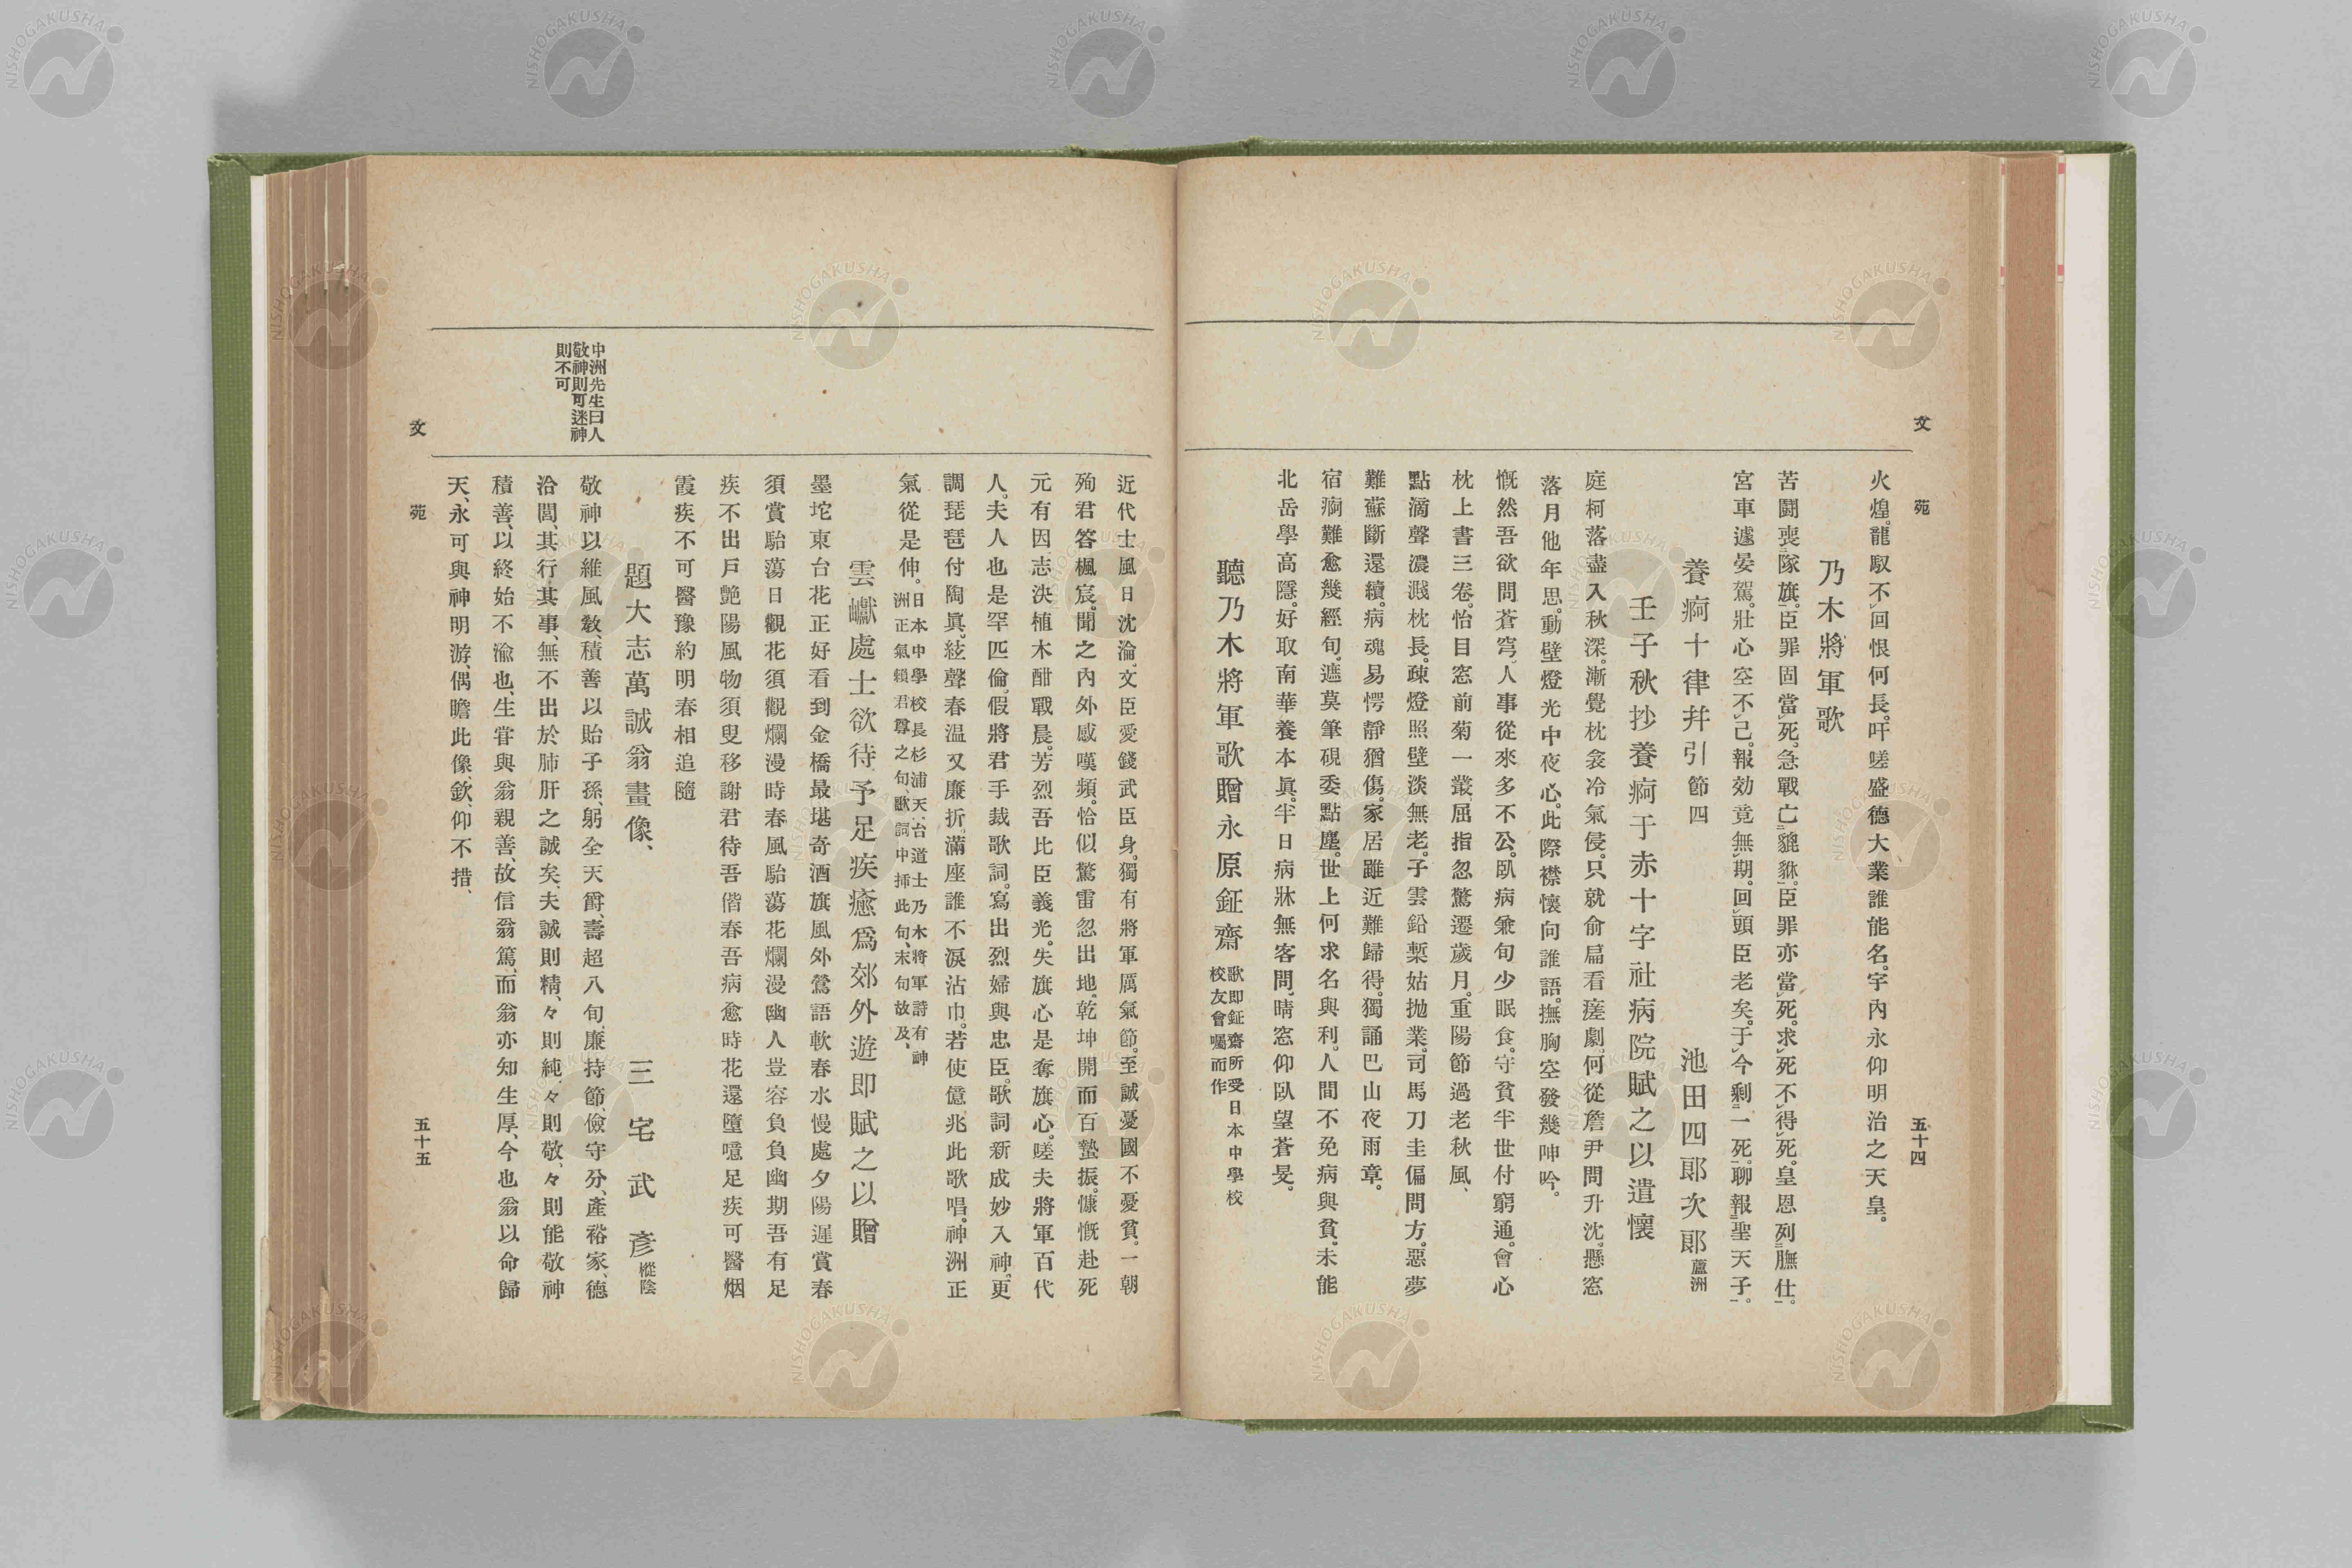 文苑
五十四
火煌。龍馭不回恨何長。吁嗟盛德大業誰能名。宇內永仰明治之天皇。
乃木將軍歌
苦鬪喪隊旗。臣罪固當死。急戰亡貔貅。臣罪亦當死。求死不得死。皇恩列膴仕。
宮車遽晏駕。壯心空不已。報効竟無期。回頭臣老矣。于今剩一死。聊報聖天子。
養痾十律幷引節四
池田四郞次郞蘆洲
壬子秋抄養痾于赤十字社病院賦之以遣懷
庭柯落盡入秋深。漸覺枕衾冷氣侵。只就俞扁看瘥劇。何從詹尹問升沈。懸窓
落月他年思。動壁燈光中夜心。此際襟懷向誰語。撫胸空發幾呻吟。
慨然吾欲問蒼穹、人事從來多不公。臥病兼旬少眠食。守貧半世付窮通。會心
枕上書三卷。怡目窓前菊一叢。屈指忽驚遷歲月。重陽節過老秋風、
點滴聲濃濺枕長。疎燈照壁淡無老。子雲鉛槧姑抛業。司馬刀圭偏問方。惡夢
難蘇斷還續。病魂易愕靜猶傷。家居雖近難歸得。獨誦巴山夜雨章。
宿痾難愈幾經旬。遮莫筆硯委點塵。世上何求名與利。人間不免病與貧。未能
北岳學高隱。好取南華養本眞。半日病牀無客問。晴窓仰臥望蒼旻。
聽乃木將軍歌贈永原鉦齋
歌卽鉦齋所受日本中學校
校友會囑而作
近代士風日沈淪。文臣愛錢武臣身。獨有將軍厲氣節。至誠憂國不憂貧。一朝
殉君答楓宸。聞之內外感嘆頻。恰似驚雷忽出地。乾坤開而百蟄振。慷慨赴死
元有因。志決植木酣戰晨。芳烈吾比臣義光。失旗心是奪旗心。嗟夫將軍百代
人。夫人也是罕匹倫。假將君手裁歌詞。寫出烈婦與忠臣。歌詞新成妙入神。更
調琵琶付陶眞。絃聲春溫又廉折。滿座誰不淚沾巾。若使億兆此歌唱。神洲正
氣從是伸。
日本中學校長杉浦天台道士乃木將軍詩有神
洲正氣賴君尊之句、歌詞中揷此句、末句故及、
雲巘處士欲待予足疾癒爲郊外遊卽賦之以贈
墨坨東台花正好看到金橋最堪奇酒旗風外鶯語軟春水慢處夕陽遲賞春
須賞駘蕩日觀花須觀爛漫時春風駘蕩花爛漫幽人豈容負負幽期吾有足
疾不出戶艶陽風物須臾移謝君待吾偕春吾病愈時花還墮噫足疾可醫烟
霞疾不可醫豫約明春相追隨
題大志萬誠翁畫像、
三宅武彥樅陰
中洲先生曰人
敬神則可迷神
則不可
敬神以維風敎、積善以貽子孫、躬全天爵、壽超八旬、廉持節、儉守分、產裕家、德
洽閭、其行其事、無不出於肺肝之誠矣、夫誠則精、々則純、々則敬、々則能敬神
積善、以終始不渝也、生甞與翁親善、故信翁篤、而翁亦知生厚、今也翁以命歸
天、永可與神明游、偶瞻此像、欽仰不措、
文苑
五十五